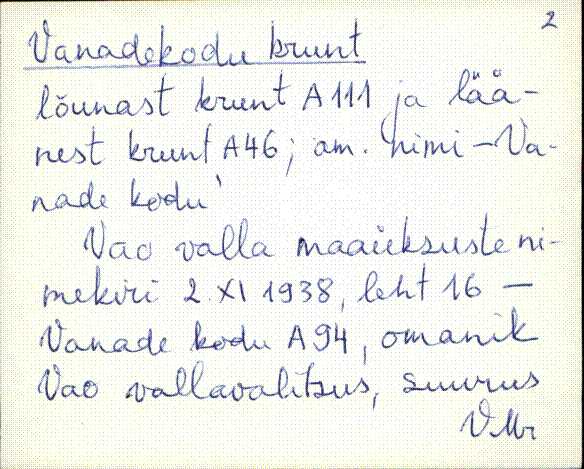 2
Vanadekodu krunt
lõunast krunt A111 ja lää-
nest krunt A46; am. nimi - Va-
nade kodu'
Vao valla maaüksuste ni-
mekiri 2 XI 1938, leht 16 -
Vanade kodu A94, omanik
Vao vallavalitsus, suurus
VMr